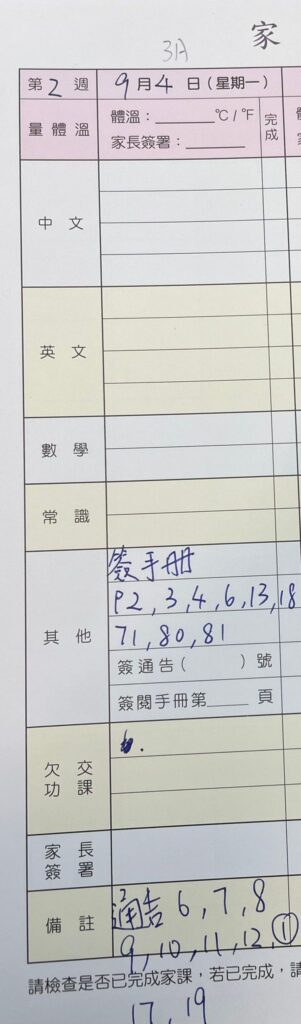 3A
家
第2週 9月4日(星期一)
量體溫 體溫:______℃/℉ 完成
家長簽署:______
中文
英文
數學
常識
其他 簽手册
P2,3,4,6,13,18
71,80,81
簽通告( )號
簽閱手冊第____頁
欠交功課 6.
家長簽署
備註 通告 6,7,8
9,10,11,12,①
請檢查是否已完成家課,若已完成,請
17,19